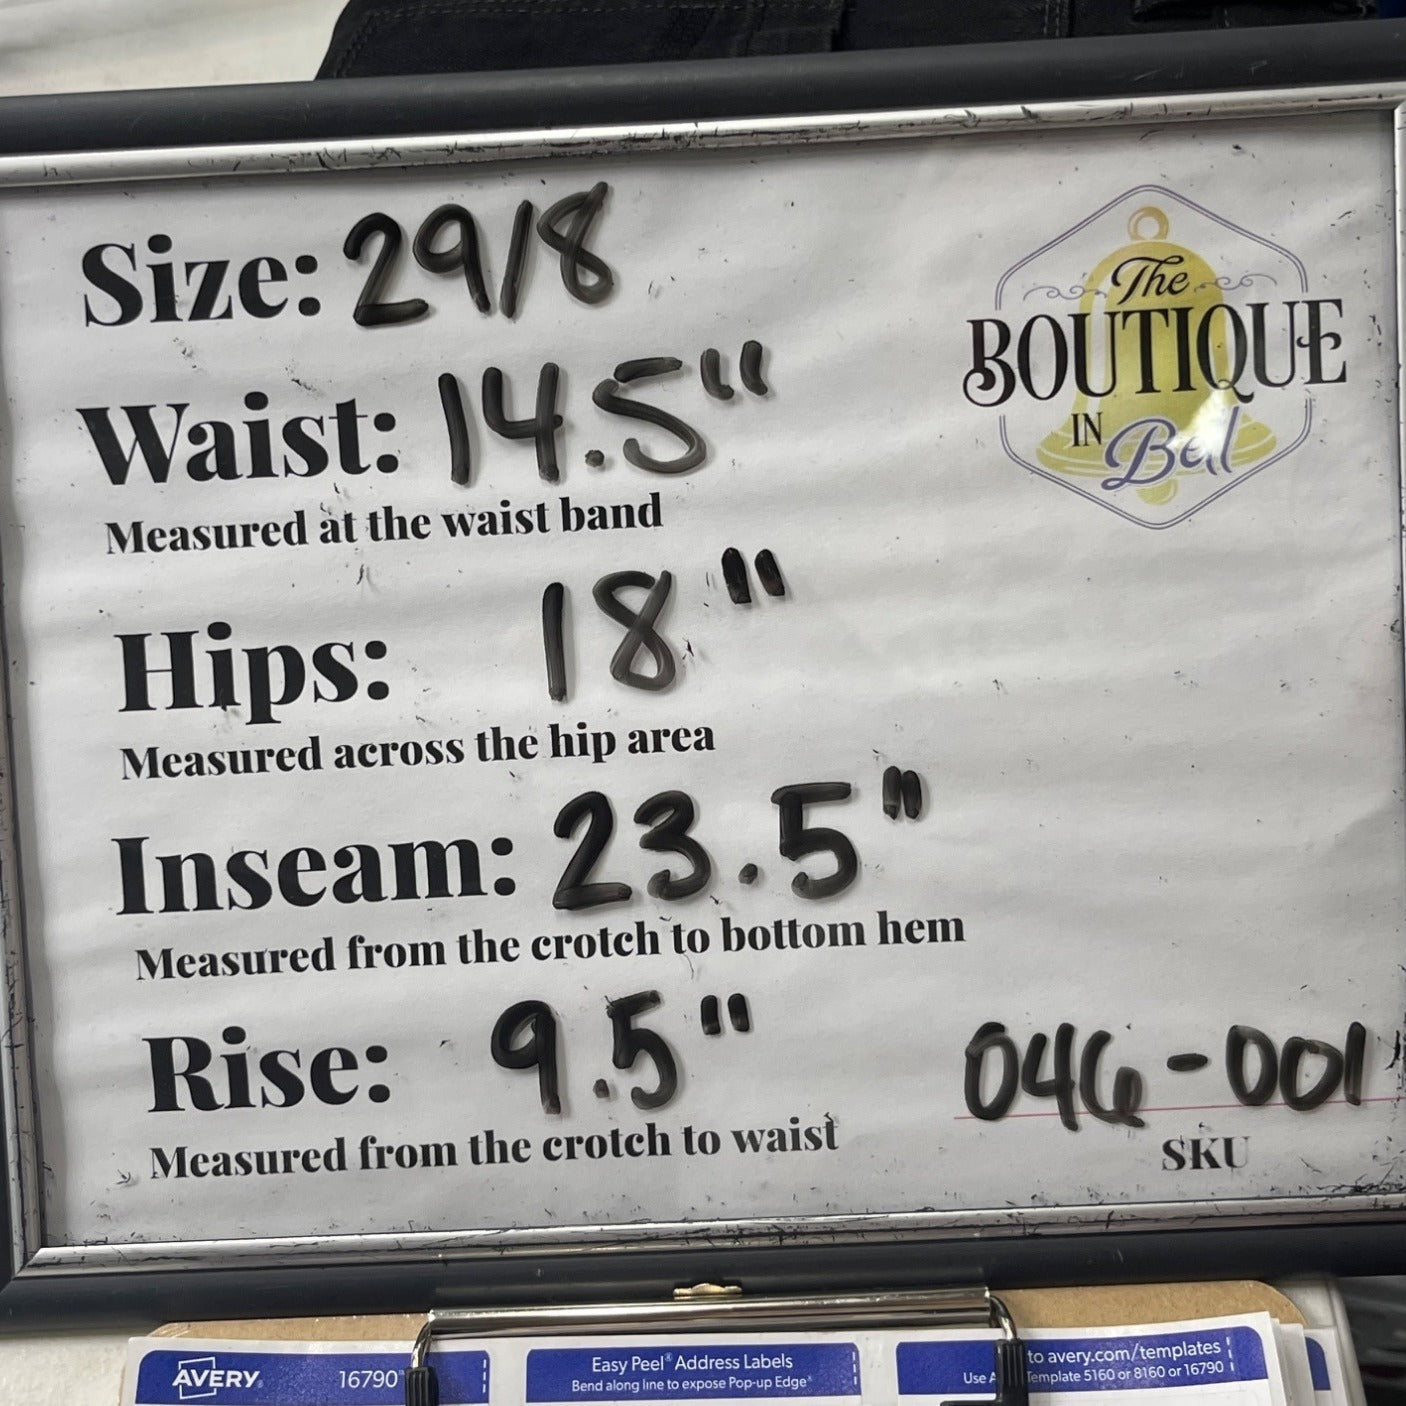 Size: 29/8
The
BOUTIQUE
IN Bell
Waist: 14.5"
Measured at the waist band
Hips: 18"
Measured across the hip area
Inseam: 23.5"
Measured from the crotch to bottom hem
Rise: 9.5"
Measured from the crotch to waist
046-001
SKU
AVERY 16790
Easy Peel® Address Labels
Bend along line to expose Pop-up Edge
to avery.com/templates
Use Template 5160 or 8160 or 16790